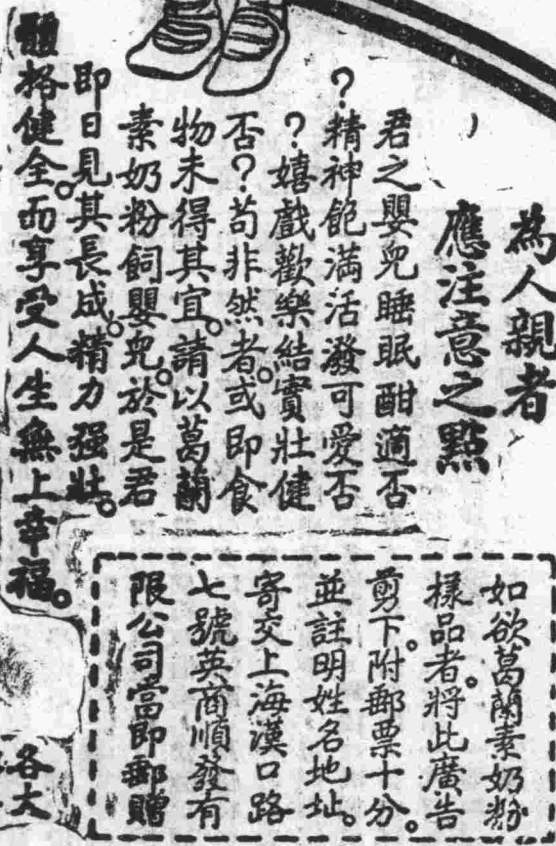 為人親者
應注意之點
君之嬰兒睡眠酣適否
?精神飽滿活潑可愛否
?嬉戲歡樂結實壯健
否?苟非然者。或即食
物未得其宜。請以葛蘭
素奶粉飼嬰兒。於是君
即日見其長成。精力强壯。
體格健全。而享受人生無上幸福。
如欲葛蘭素奶粉
樣品者。將此廣告
剪下。附郵票十分。
並註明姓名地址。
寄交上海漢口路
七號英商順發有
限公司當即郵贈
各大